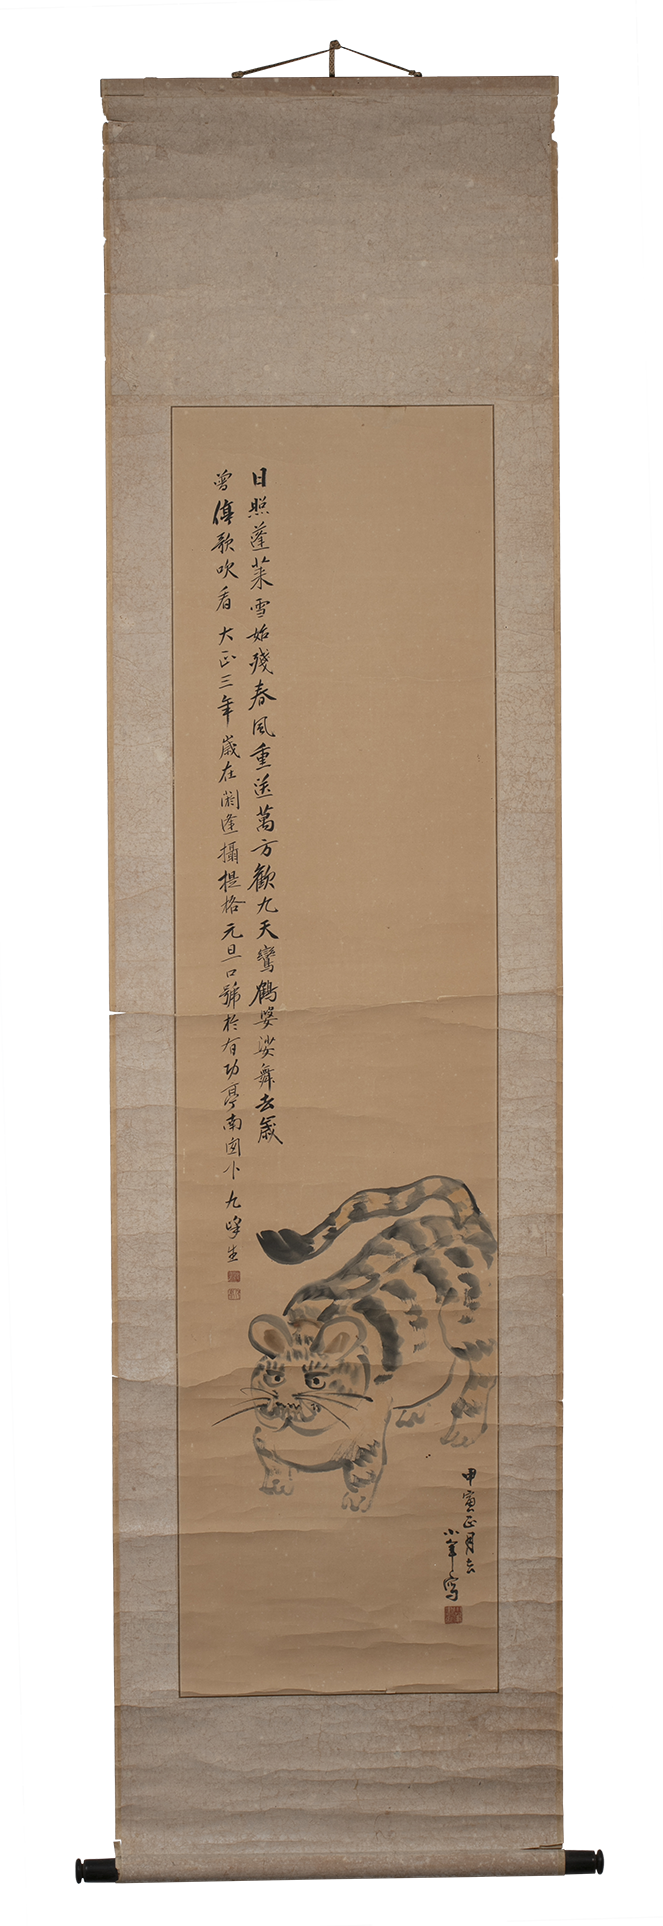 日照蓬萊雪始殘春風重送萬方歡九天鸞鶴婆娑舞去歲
曾停歌吹看 大正三年歲在閼逢攝提格元旦口號於有功亭南囱下 九峰生
甲寅正月吉
小年寫